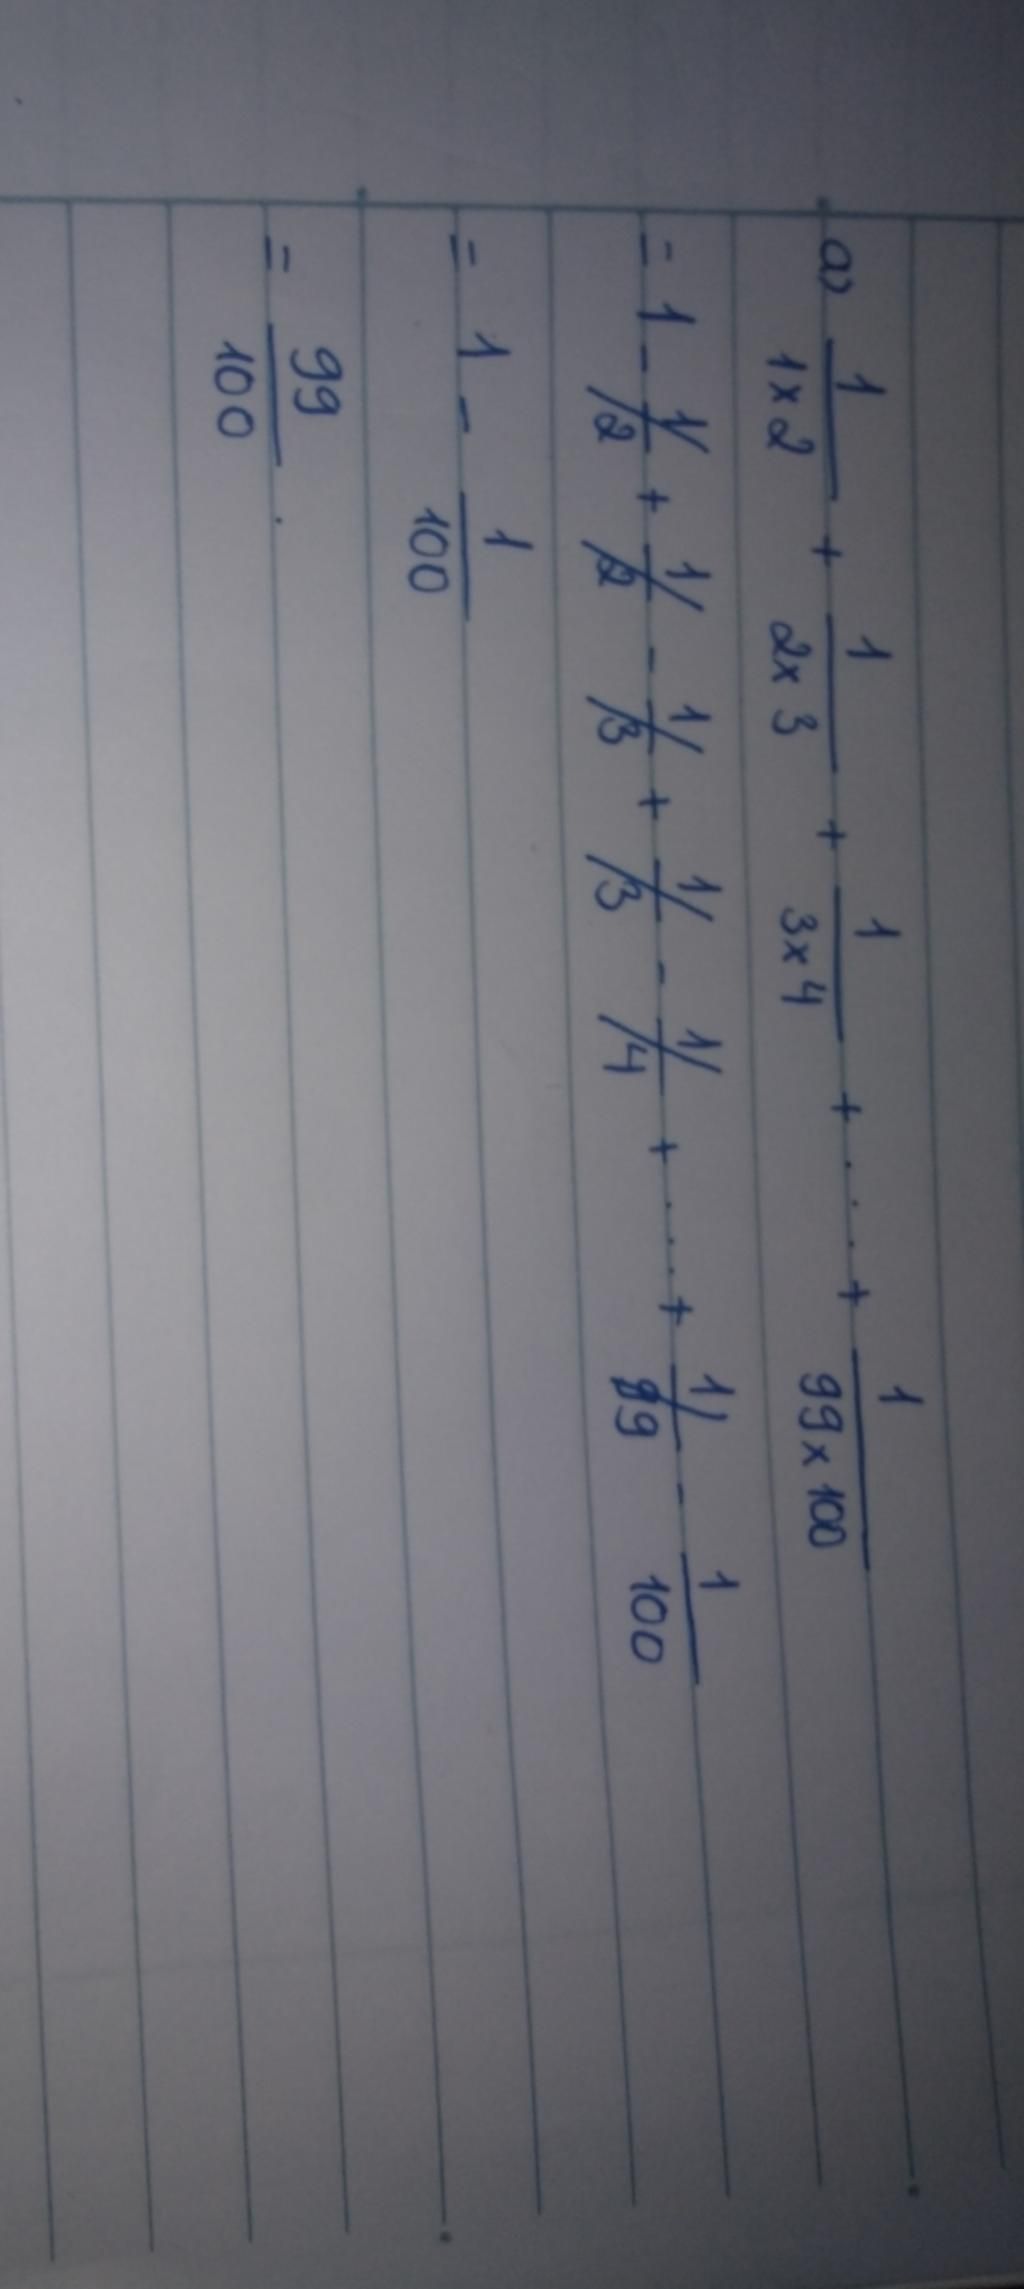 a) 1/(1×2) + 1/(2×3) + 1/(3×4) + .... + 1/(99×100)
= 1 - 1/2 + 1/2 - 1/3 + 1/3 - 1/4 + .... + 1/99 - 1/100
= 1 - 1/100
= 99/100.